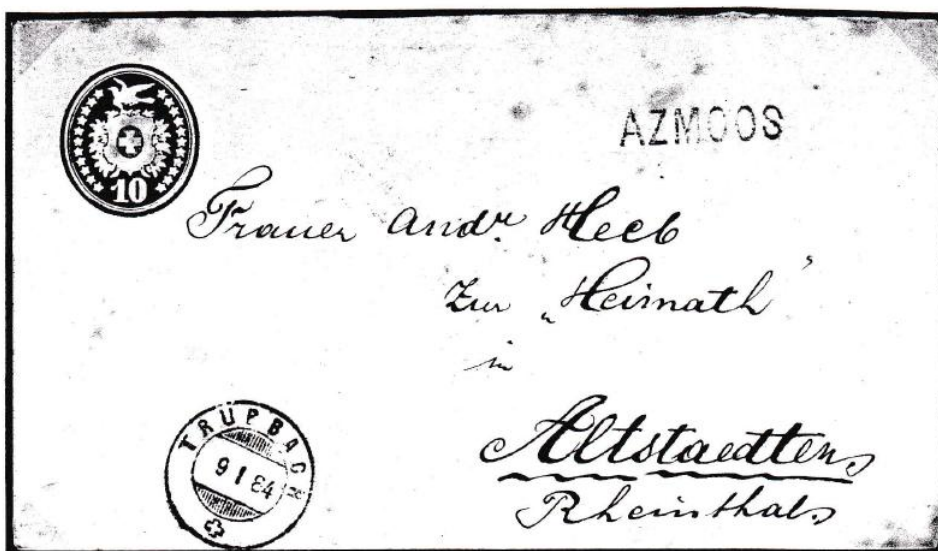 10
AZMOOS
Andr. Heeb
Zur „Heimath"
in
Altstaedten
Rheinthal
TRÜBBACH
9 I 84